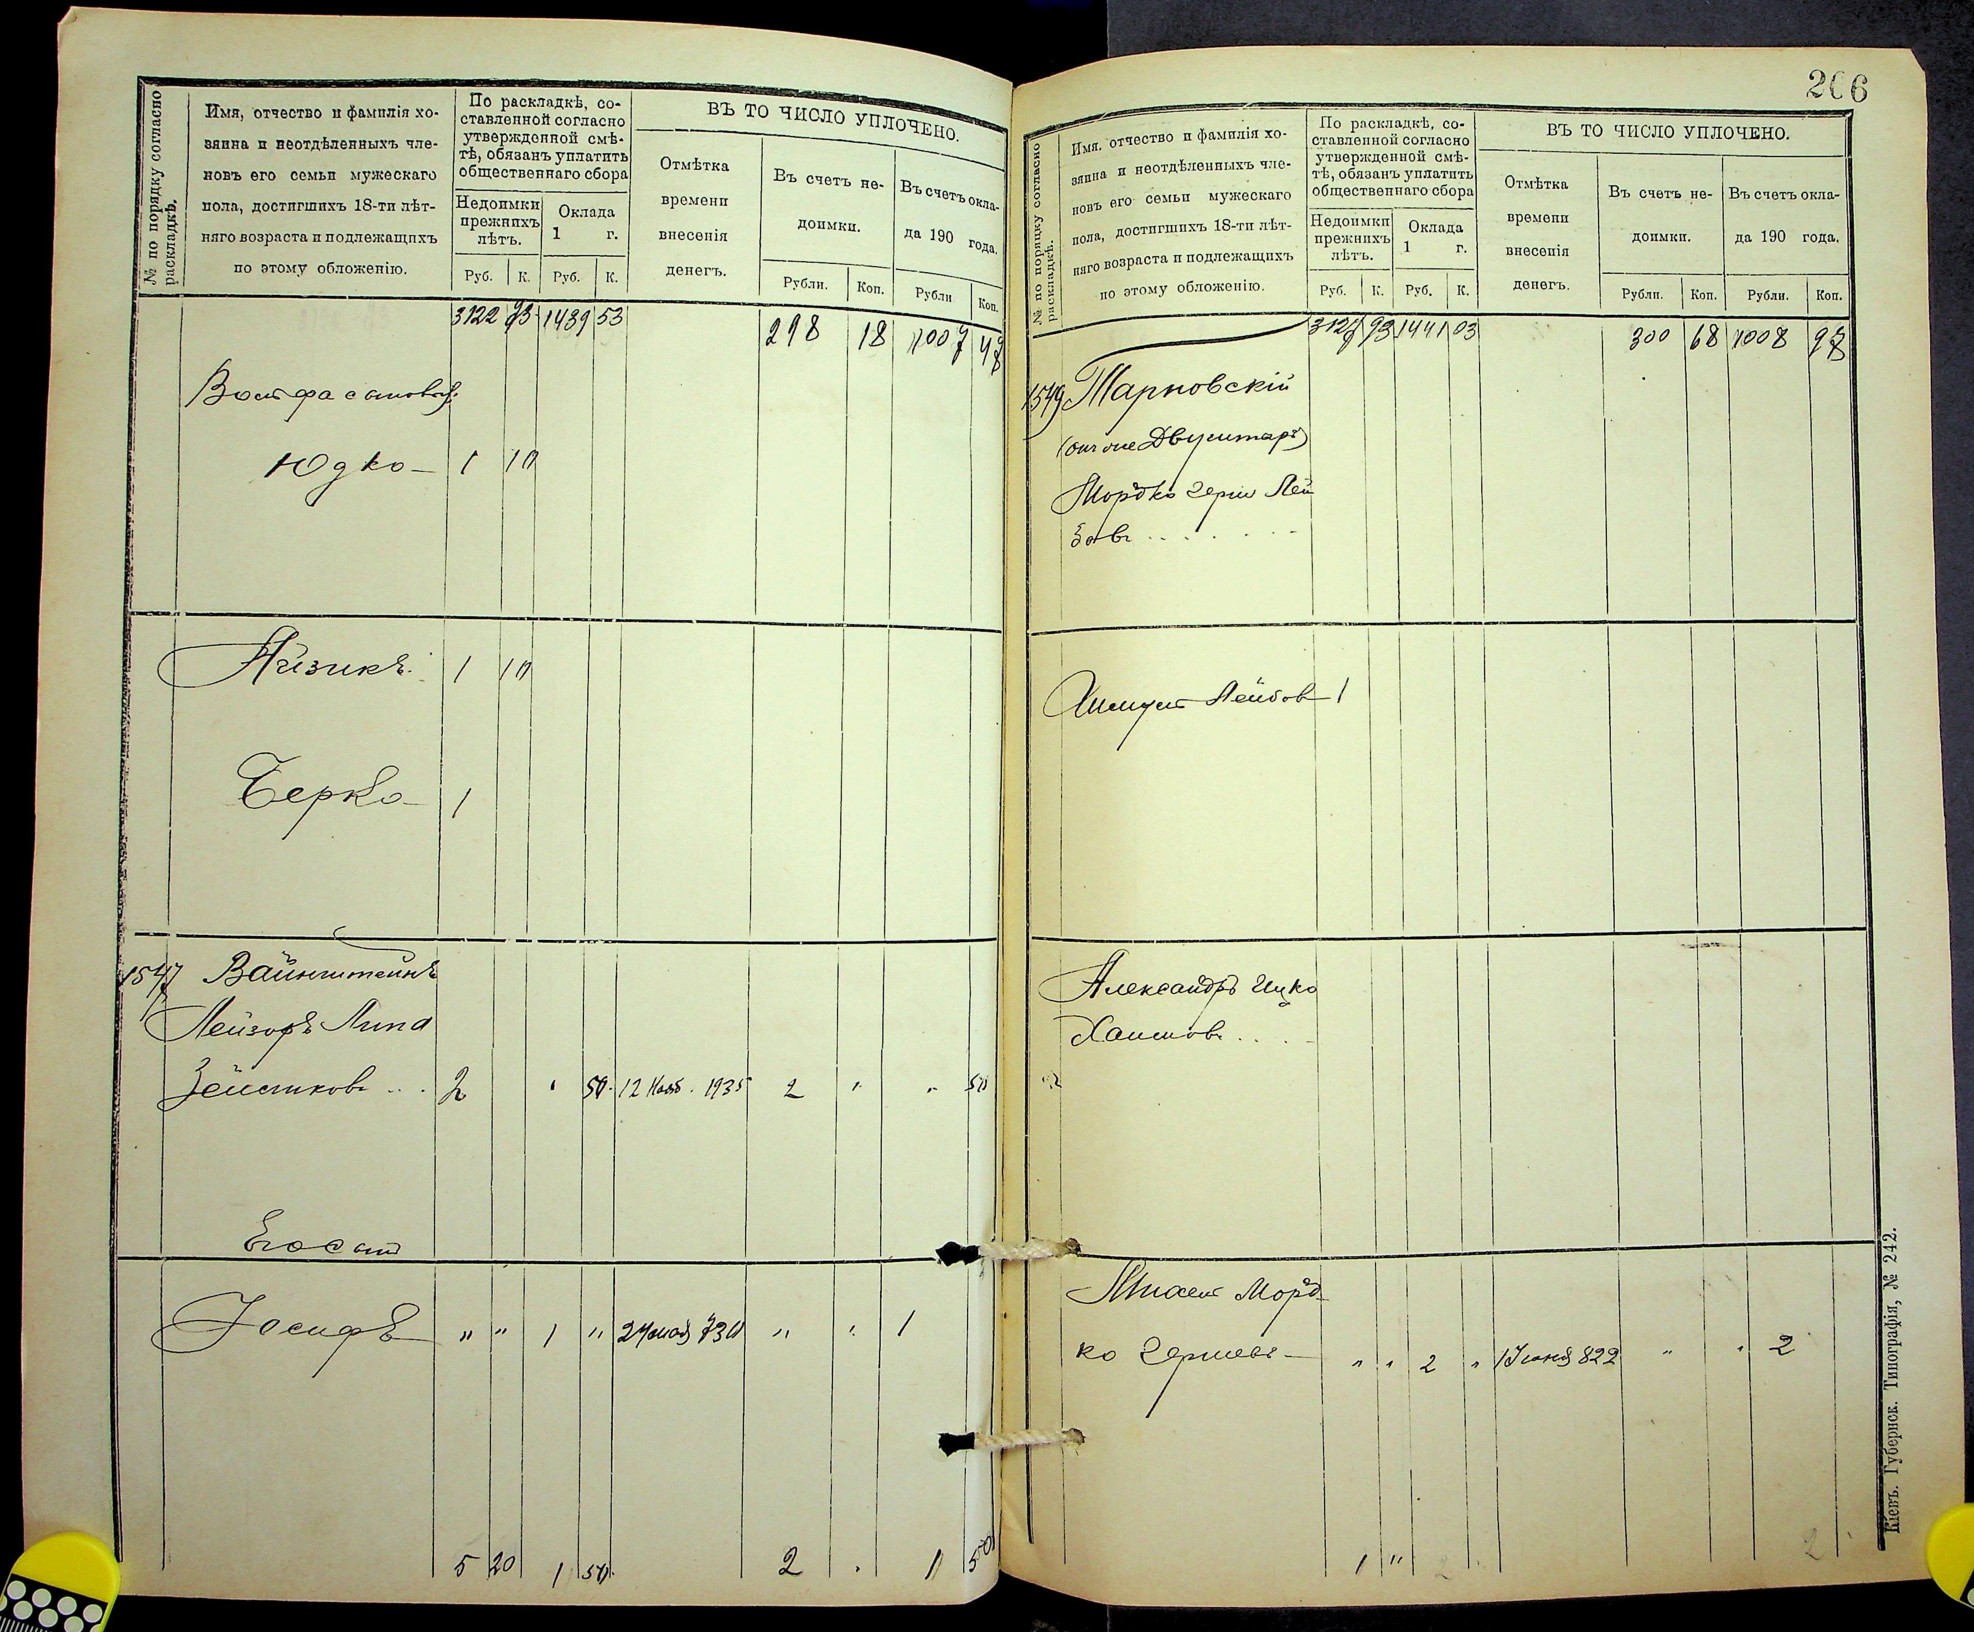 № по порядку согласно раскладкѣ.
Имя, отчество и фамилія хо-
зяина и неотдѣленныхъ чле-
новъ его семьи мужескаго
пола, достигшихъ 18-ти лѣт-
няго возраста и подлежащихъ
по этому обложенію.
По раскладкѣ, со-
ставленной согласно
утвержденной смѣ-
тѣ, обязанъ уплатить
общественнаго сбора
Недоимки прежнихъ лѣтъ.
Оклада 1 г.
Руб. К. Руб. К.
ВЪ ТО ЧИСЛО УПЛОЧЕНО.
Отмѣтка
времени
внесенія
денегъ.
Въ счетъ не-
доимки.
Въ счетъ окла-
да 190 года.
Рубли. Коп. Рубли Коп.
3122 73 1439 53 298 18 1007 48
Юдко 1 10
Айзикъ 1 10
Берко 1
1547 Вайнштейнъ
Лейзоръ Липа
2 " 50 12 Нояб. 1935 2 " " 50
Іосифъ " " 1 " 24 мая 730 " " 1
5 20 1 50 2 . 1 50
206
№ по порядку согласно раскладкѣ.
Имя, отчество и фамилія хо-
зяина и неотдѣленныхъ чле-
новъ его семьи мужескаго
пола, достигшихъ 18-ти лѣт-
няго возраста и подлежащихъ
по этому обложенію.
По раскладкѣ, со-
ставленной согласно
утвержденной смѣ-
тѣ, обязанъ уплатить
общественнаго сбора
Недоимки прежнихъ лѣтъ.
Оклада 1 г.
Руб. К. Руб. К.
ВЪ ТО ЧИСЛО УПЛОЧЕНО.
Отмѣтка
времени
внесенія
денегъ.
Въ счетъ не-
доимки.
Въ счетъ окла-
да 190 года.
Рубли. Коп. Рубли. Коп.
3127 93 1441 03 300 68 1008 98
1549 Тарновскій
Мордко Герш Лей
зовъ
Лейбов 1
Александръ Ицко
Хаимовъ
Морд-
ко Гершовъ " " 2 " 1 Іюня 822 " " 2
1 " 2 2
Кіевъ. Губернск. Типографія, № 242.